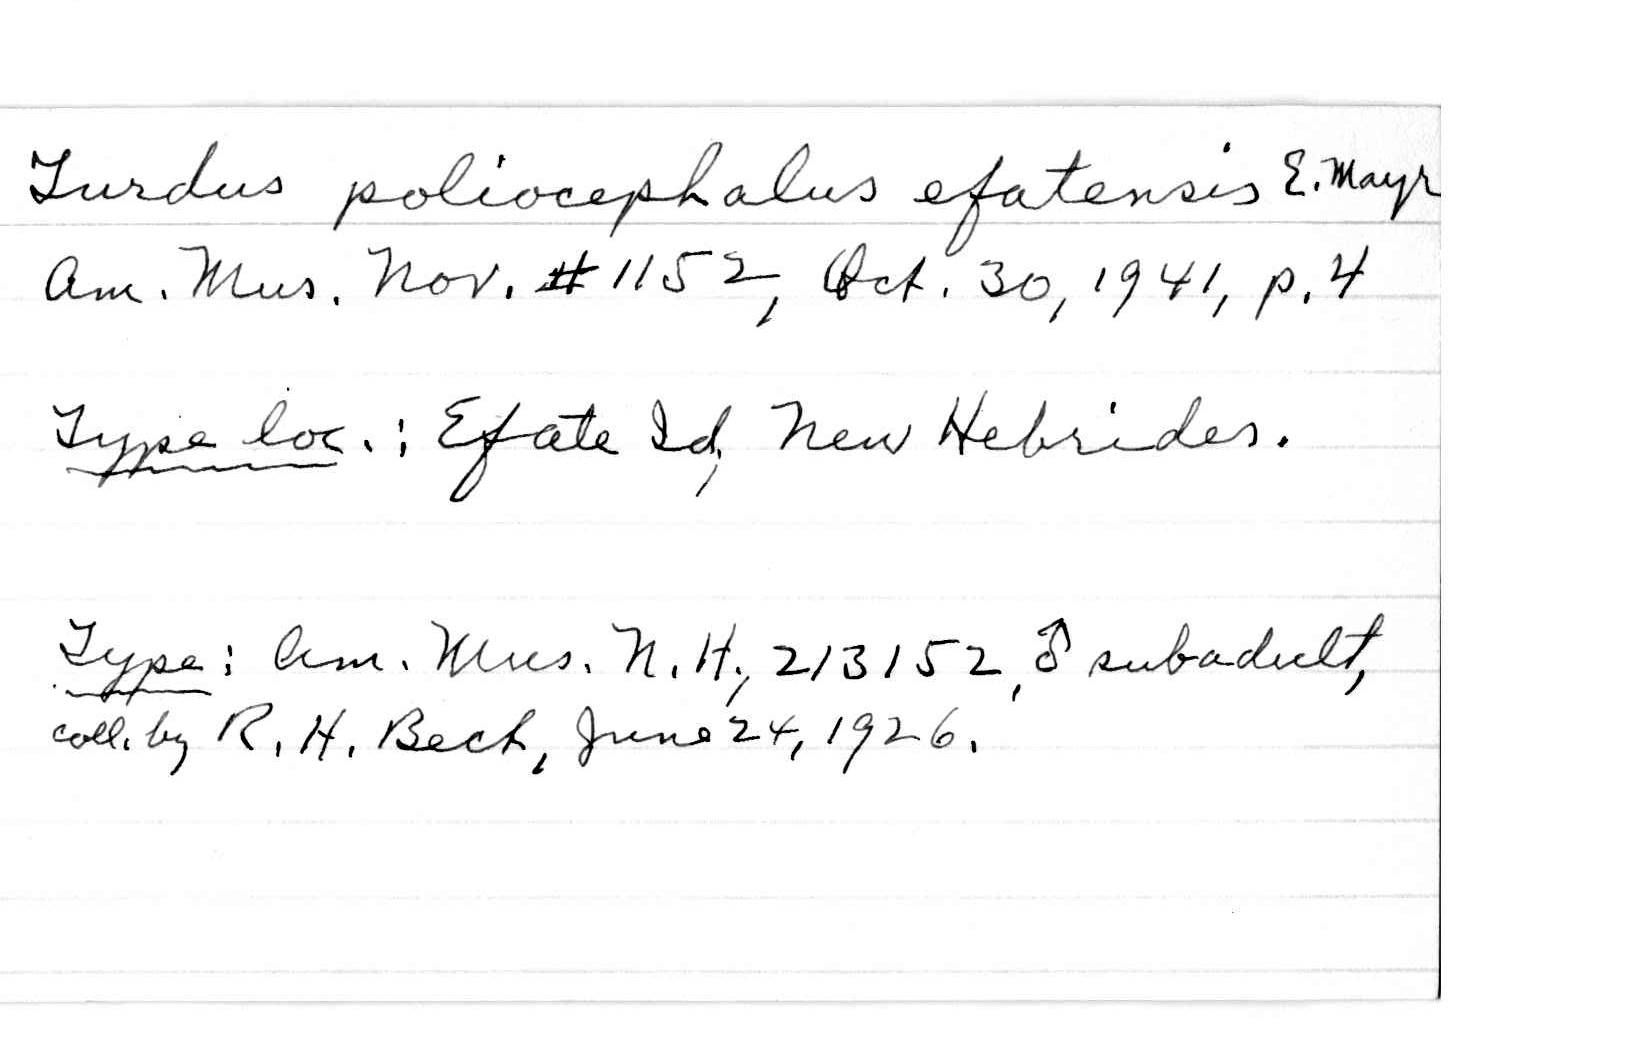 Turdus poliocephalus efatensis E. Mayr
Am. Mus. Nov. #1152, Oct. 30, 1941, p. 4
Type loc.: Efate Id, New Hebrides.
Type: Am. Mus. N.H., 213152, ♂ subadult,
coll. by R. H. Beck, June 24, 1926.